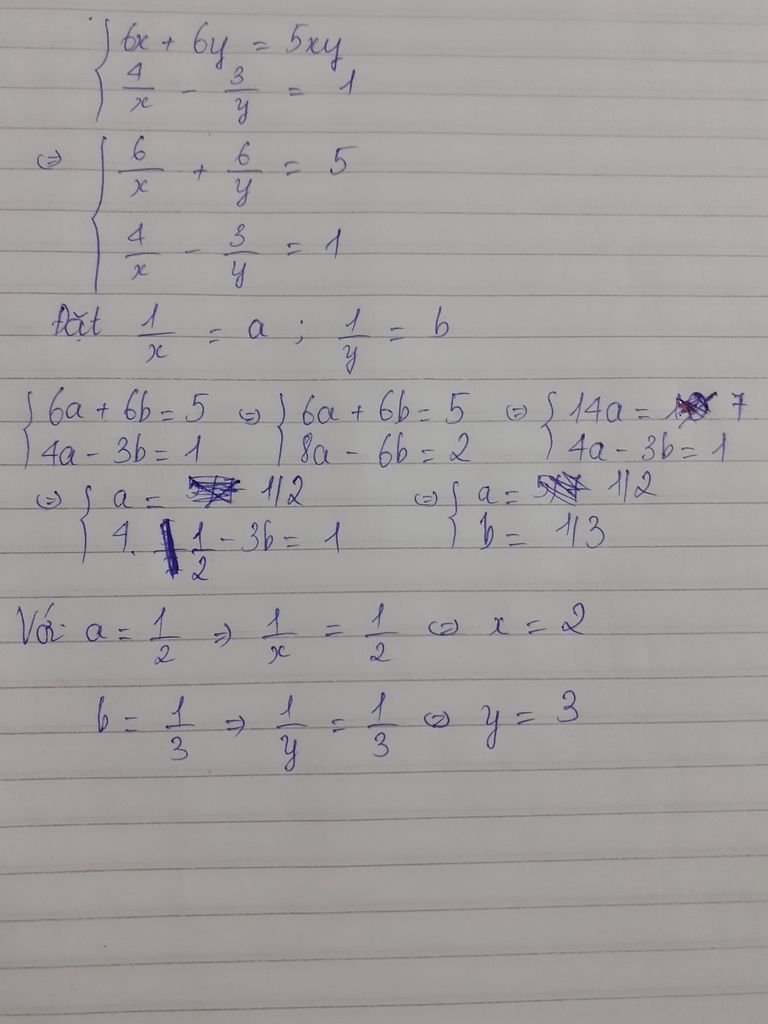 { 6x + 6y = 5xy
4/x - 3/y = 1
<=> { 6/x + 6/y = 5
4/x - 3/y = 1
Đặt 1/x = a ; 1/y = b
{ 6a + 6b = 5 <=> { 6a + 6b = 5 <=> { 14a = 7
4a - 3b = 1 8a - 6b = 2 4a - 3b = 1
<=> { a = 1/2 <=> { a = 1/2
4. 1/2 - 3b = 1 b = 1/3
Với a = 1/2 => 1/x = 1/2 <=> x = 2
b = 1/3 => 1/y = 1/3 <=> y = 3